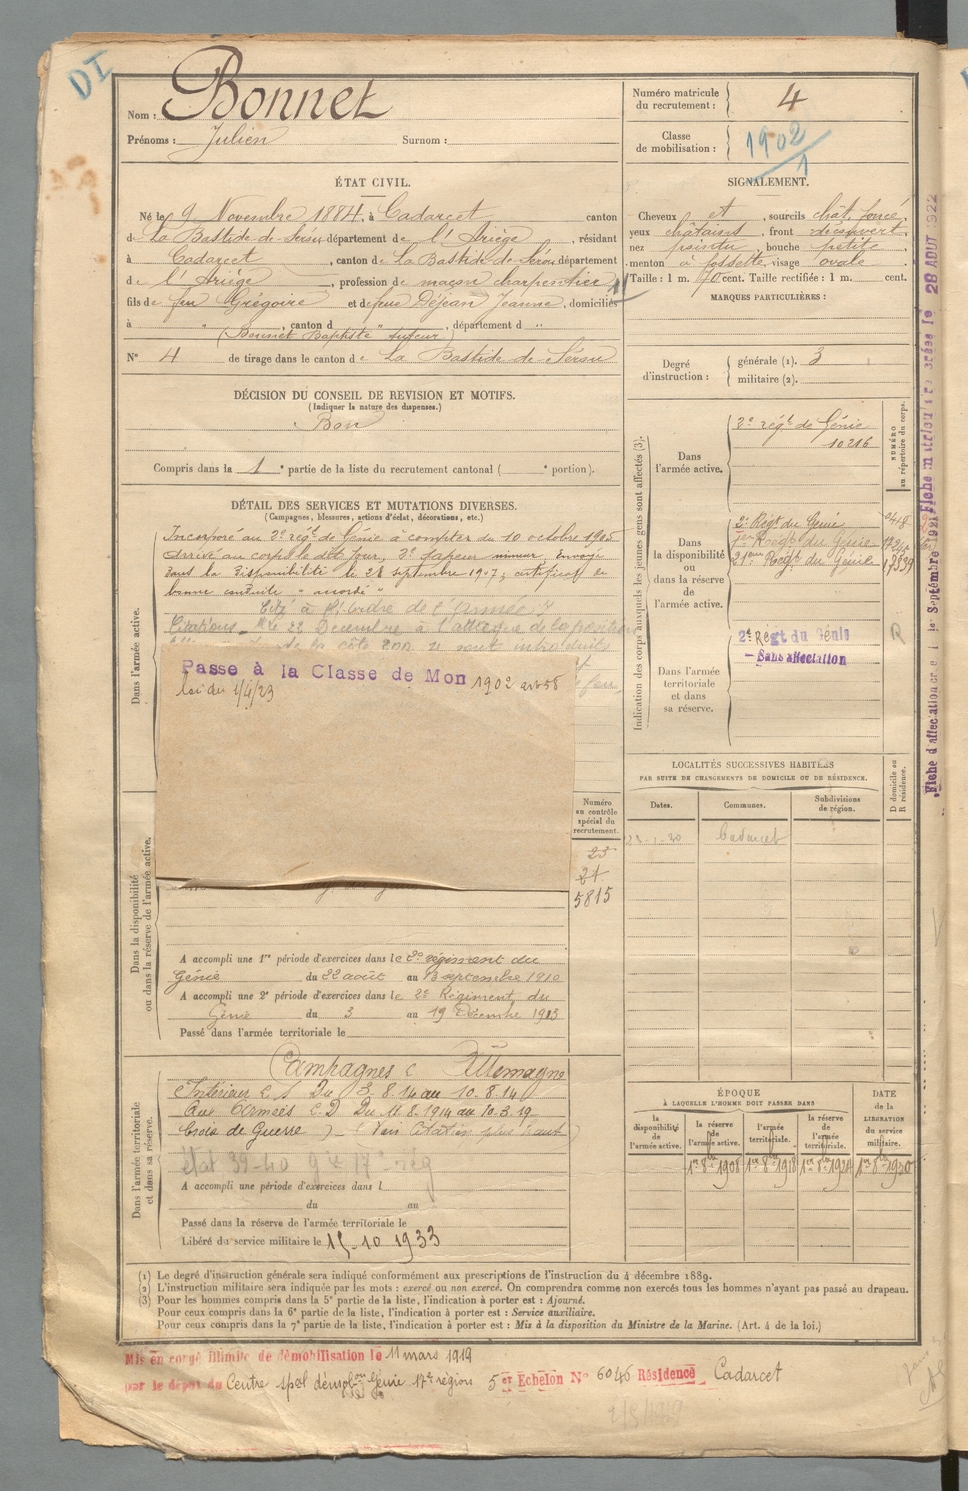 DI
Nom : Bonnet
Prénoms : Julien Surnom :
Numéro matricule du recrutement : 4
Classe de mobilisation : 1902/1
ÉTAT CIVIL.
Né le 9 Novembre 1884, à Cadarcet canton
de La Bastide-de-Sérou département de l'Ariège, résidant
à Cadarcet, canton de La Bastide-de-Sérou département
de l'Ariège, profession de maçon charpentier
fils de feu Grégoire et de feue Déjean Jeanne, domiciliés
à " , canton d " , département d "
(Bonnet Baptiste tuteur)
N° 4 de tirage dans le canton de La Bastide-de-Sérou
SIGNALEMENT.
Cheveux et , sourcils chât. foncé,
yeux châtains, front découvert,
nez pointu, bouche petite,
menton à fossette, visage ovale
Taille : 1 m. 70 cent. Taille rectifiée : 1 m. cent.
MARQUES PARTICULIÈRES :
Degré d'instruction : générale (1). 3
militaire (2).
DÉCISION DU CONSEIL DE REVISION ET MOTIFS.
(Indiquer la nature des dispenses.)
Bon
Compris dans la 1e partie de la liste du recrutement cantonal ( e portion).
DÉTAIL DES SERVICES ET MUTATIONS DIVERSES.
(Campagnes, blessures, actions d'éclat, décorations, etc.)
Dans l'armée active.
Incorporé au 2e régt de Génie à compter du 10 octobre 1905
Arrivé au corps le dit jour, 2e sapeur mineur. Envoyé
dans la disponibilité le 28 septembre 1907; certificat de
bonne conduite "accordé"
Cité à l'Ordre de l'Armée
Citations le 22 Décembre à l'attaque de la position
de la côte 200 se sont introduits
Passe à la Classe de Mon 1902 art 58
loi du 1/4/23
Indication des corps auxquels les jeunes gens sont affectés (3).
NUMÉRO au répertoire du corps.
Dans l'armée active.
2e régt de Génie
10216
Dans la disponibilité ou dans la réserve de l'armée active.
2e Régt du Génie
1er Régt du Génie
21eme Régt du Génie 17539
Dans l'armée territoriale et dans sa réserve.
2e Régt du Génie
– Sans affectation
R
Fiche d'affectation créée le Septembre 1921
28 AOUT 1922
LOCALITÉS SUCCESSIVES HABITÉES
PAR SUITE DE CHANGEMENTS DE DOMICILE OU DE RÉSIDENCE.
D domicile ou R résidence.
Dates. Communes. Subdivisions de région.
Cadarcet
Numéro au contrôle spécial du recrutement.
23
21
5815
Dans la disponibilité ou dans la réserve de l'armée active.
A accompli une 1re période d'exercices dans le 2e régiment du
Génie du 22 août au 13 septembre 1910
A accompli une 2e période d'exercices dans le 2e Régiment du
Génie du 3 au 19 Décembre 1913
Passé dans l'armée territoriale le
Dans l'armée territoriale et dans sa réserve.
Campagnes c Allemagne
Intérieur C S Du 3.8.14 au 10.8.14
Aux Armées C D Du 11.8.1914 au 10.3.19
Croix de Guerre ) – (Voir Citation plus haut)
état 39-40 17e rég
A accompli une période d'exercices dans l
du au
Passé dans la réserve de l'armée territoriale le
Libéré du service militaire le 15-10 1933
ÉPOQUE
À LAQUELLE L'HOMME DOIT PASSER DANS
la disponibilité de l'armée active.
la réserve de l'armée active.
l'armée territoriale.
la réserve de l'armée territoriale.
DATE de la LIBÉRATION du service militaire.
1er 8bre 1908
1er 8bre 1918
1er 8bre 1924
1er 8bre 1930
(1) Le degré d'instruction générale sera indiqué conformément aux prescriptions de l'instruction du 4 décembre 1889.
(2) L'instruction militaire sera indiquée par les mots : exercé ou non exercé. On comprendra comme non exercés tous les hommes n'ayant pas passé au drapeau.
(3) Pour les hommes compris dans la 5e partie de la liste, l'indication à porter est : Ajourné.
Pour ceux compris dans la 6e partie de la liste, l'indication à porter est : Service auxiliaire.
Pour ceux compris dans la 7e partie de la liste, l'indication à porter est : Mis à la disposition du Ministre de la Marine. (Art. 4 de la loi.)
Mis en congé illimité de démobilisation le 11 mars 1919
par le dépôt du Centre spal démobon Génie 17e région 5 er Echelon N° 6046 Résidence Cadarcet